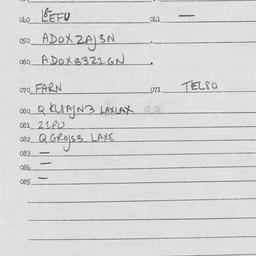 040 LEFU 041 —
050 ADOXZAJ3N .
060 ADOX8321GN .
070 FARN 071 TEL80
080 Q KL8AJN3 LAXLAX QQ
081 21PU
082 Q GROJS3 LAXE
083 —
084 —
085 —